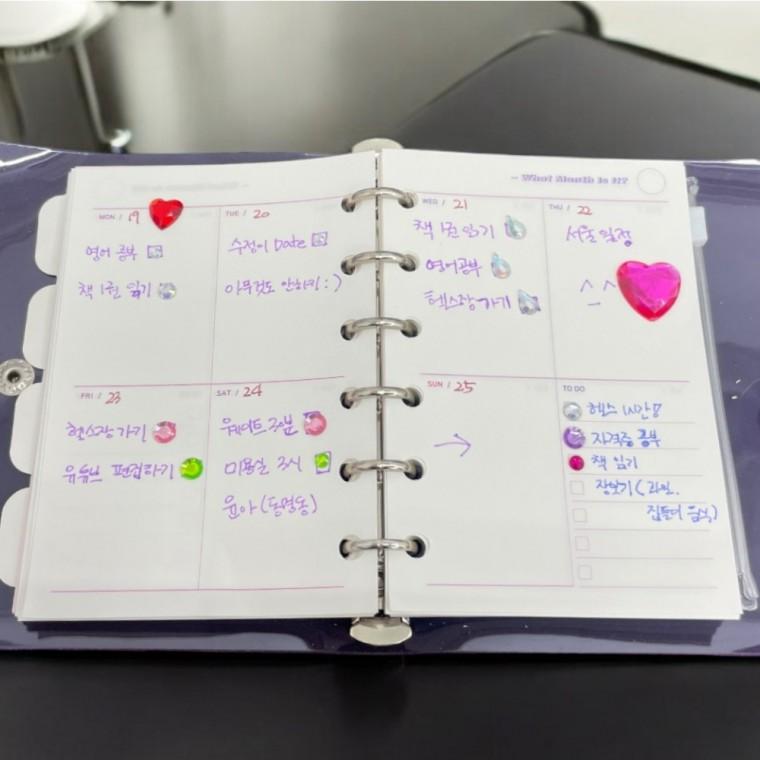 - What Month Is It?
MON / 19
영어 공부
책 1권 읽기
TUE / 20
수정이 Date
아무것도 안하기 : )
WED / 21
책 1권 읽기
영어공부
헬스장 가기
THU / 22
서울 일정
^_^
FRI / 23
헬스장 가기
유튜브 편집하기
SAT / 24
웨이트 30분
미용실 3시
윤아 (동명동)
SUN / 25
→
TO DO
자격증 공부
책 읽기
장보기 (과일,
집들이 음식)